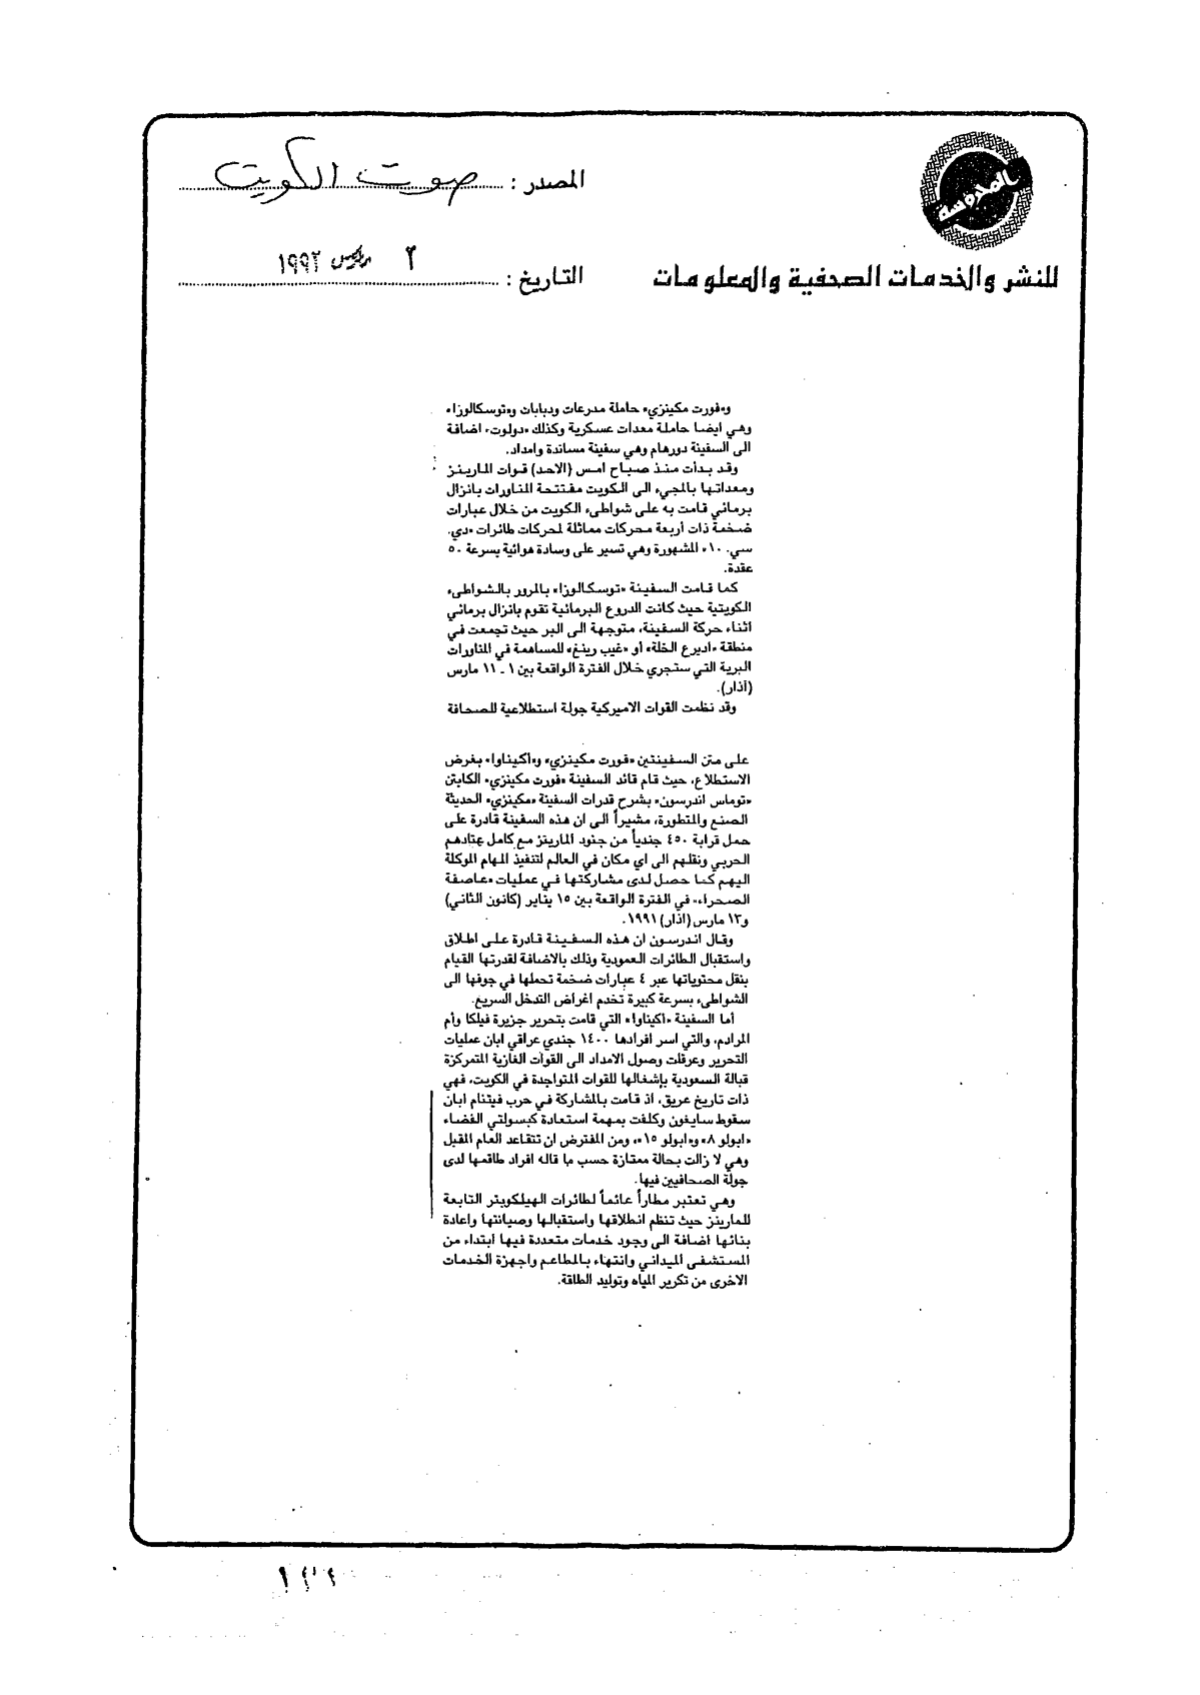 المصدر : صوت الكويت
التاريخ : ٢ مارس ١٩٩٢
للنشر والخدمات الصحفية والمعلومات
و«فورت مكينزي» حاملة مدرعات ودبابات و«توسكالوزا»
وهي ايضا حاملة معدات عسكرية وكذلك «دولوت» اضافة
الى السفينة دورهام وهي سفينة مساندة وامداد.
وقد بدأت منذ صباح امس (الاحد) قوات المارينز
ومعداتها بالمجيء الى الكويت مفتتحة المناورات بانزال
برمائي قامت به على شواطىء الكويت من خلال عبارات
ضخمة ذات أربعة محركات مماثلة لمحركات طائرات «دي.
سي. ١٠» المشهورة وهي تسير على وسادة هوائية بسرعة ٥٠
عقدة.
كما قامت السفينة «توسكالوزا» بالمرور بالشواطىء
الكويتية حيث كانت الدروع البرمائية تقوم بانزال برمائي
اثناء حركة السفينة، متوجهة الى البر حيث تجمعت في
منطقة «اديرع الخلة» أو «غيب رينغ» للمساهمة في المناورات
البرية التي ستجري خلال الفترة الواقعة بين ١ ـ ١١ مارس
(آذار).
وقد نظمت القوات الاميركية جولة استطلاعية للصحافة
على متن السفينتين «فورت مكينزي» و«اكيناوا» بغرض
الاستطلاع، حيث قام قائد السفينة «فورت مكينزي» الكابتن
«توماس اندرسون» بشرح قدرات السفينة «مكينزي» الحديثة
الصنع والمتطورة، مشيراً الى ان هذه السفينة قادرة على
حمل قرابة ٤٥٠ جندياً من جنود المارينز مع كامل عتادهم
الحربي ونقلهم الى اي مكان في العالم لتنفيذ المهام الموكلة
اليهم كما حصل لدى مشاركتها في عمليات «عاصفة
الصحراء» في الفترة الواقعة بين ١٥ يناير (كانون الثاني)
و١٣ مارس (اذار) ١٩٩١.
وقال اندرسون ان هذه السفينة قادرة على اطلاق
واستقبال الطائرات العمودية وذلك بالاضافة لقدرتها القيام
بنقل محتوياتها عبر ٤ عبارات ضخمة تحملها في جوفها الى
الشواطىء بسرعة كبيرة تخدم اغراض التدخل السريع.
أما السفينة «اكيناوا» التي قامت بتحرير جزيرة فيلكا وأم
المرادم، والتي اسر افرادها ١٤٠٠ جندي عراقي ابان عمليات
التحرير وعرقلت وصول الامداد الى القوات الغازية المتمركزة
قبالة السعودية بإشغالها للقوات المتواجدة في الكويت، فهي
ذات تاريخ عريق، اذ قامت بالمشاركة في حرب فيتنام ابان
سقوط سايغون وكلفت بمهمة استعادة كبسولتي الفضاء
«ابولو ٨» و«ابولو ١٥»، ومن المفترض ان تتقاعد العام المقبل
وهي لا زالت بحالة ممتازة حسب ما قاله افراد طاقمها لدى
جولة الصحافيين فيها.
وهي تعتبر مطاراً عائماً لطائرات الهيلكوبتر التابعة
للمارينز حيث تنظم انطلاقها واستقبالها وصيانتها واعادة
بنائها اضافة الى وجود خدمات متعددة فيها ابتداء من
المستشفى الميداني وانتهاء بالمطاعم واجهزة الخدمات
الاخرى من تكرير المياه وتوليد الطاقة.